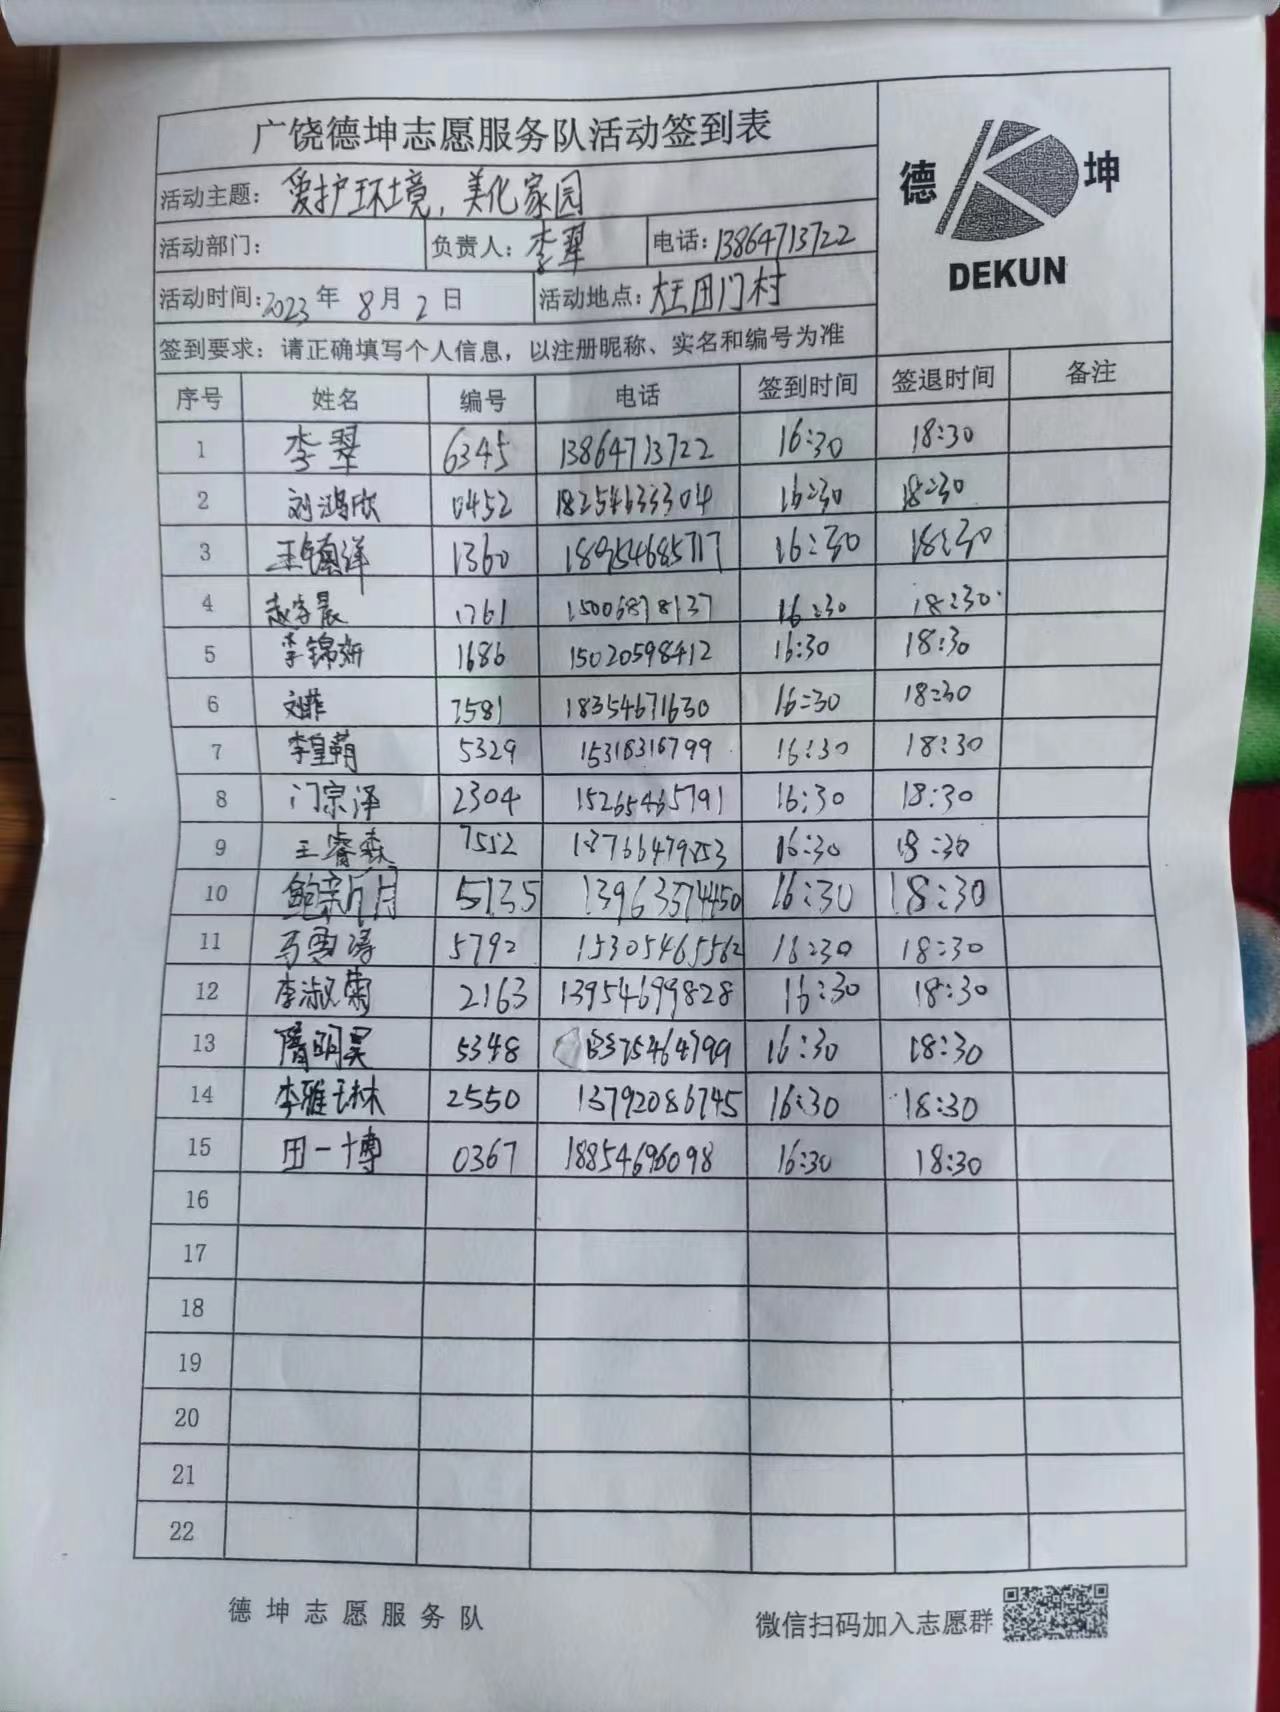 广饶德坤志愿服务队活动签到表
德 坤
DEKUN
活动主题：爱护环境，美化家园
活动部门： 负责人：李翠 电话：13864713722
活动时间：2023年 8月 2日 活动地点：大王田门村
签到要求：请正确填写个人信息，以注册昵称、实名和编号为准
序号 姓名 编号 电话 签到时间 签退时间 备注
1 李翠 6345 13864713722 16:30 18:30
2 刘鸿欣 0452 18254633304 16:30 18:30
3 王镇洋 1360 18954685717 16:30 18:30
4 1761 15006878137 16:30 18:30
5 李锦妍 1686 15020598412 16:30 18:30
6 刘菲 7581 18354671630 16:30 18:30
7 李皇萌 5329 15318316799 16:30 18:30
8 门宗泽 2304 15265465791 16:30 18:30
9 王睿森 7552 16:30 18:30
10 5135 13963374450 16:30 18:30
11 马雪涛 5792 15305465562 16:30 18:30
12 李淑菊 2163 13954699828 16:30 18:30
13 隋明昊 5348 13375464799 16:30 18:30
14 李雅琳 2550 13792086745 16:30 18:30
15 田一博 0367 18854696098 16:30 18:30
16
17
18
19
20
21
22
德坤志愿服务队 微信扫码加入志愿群